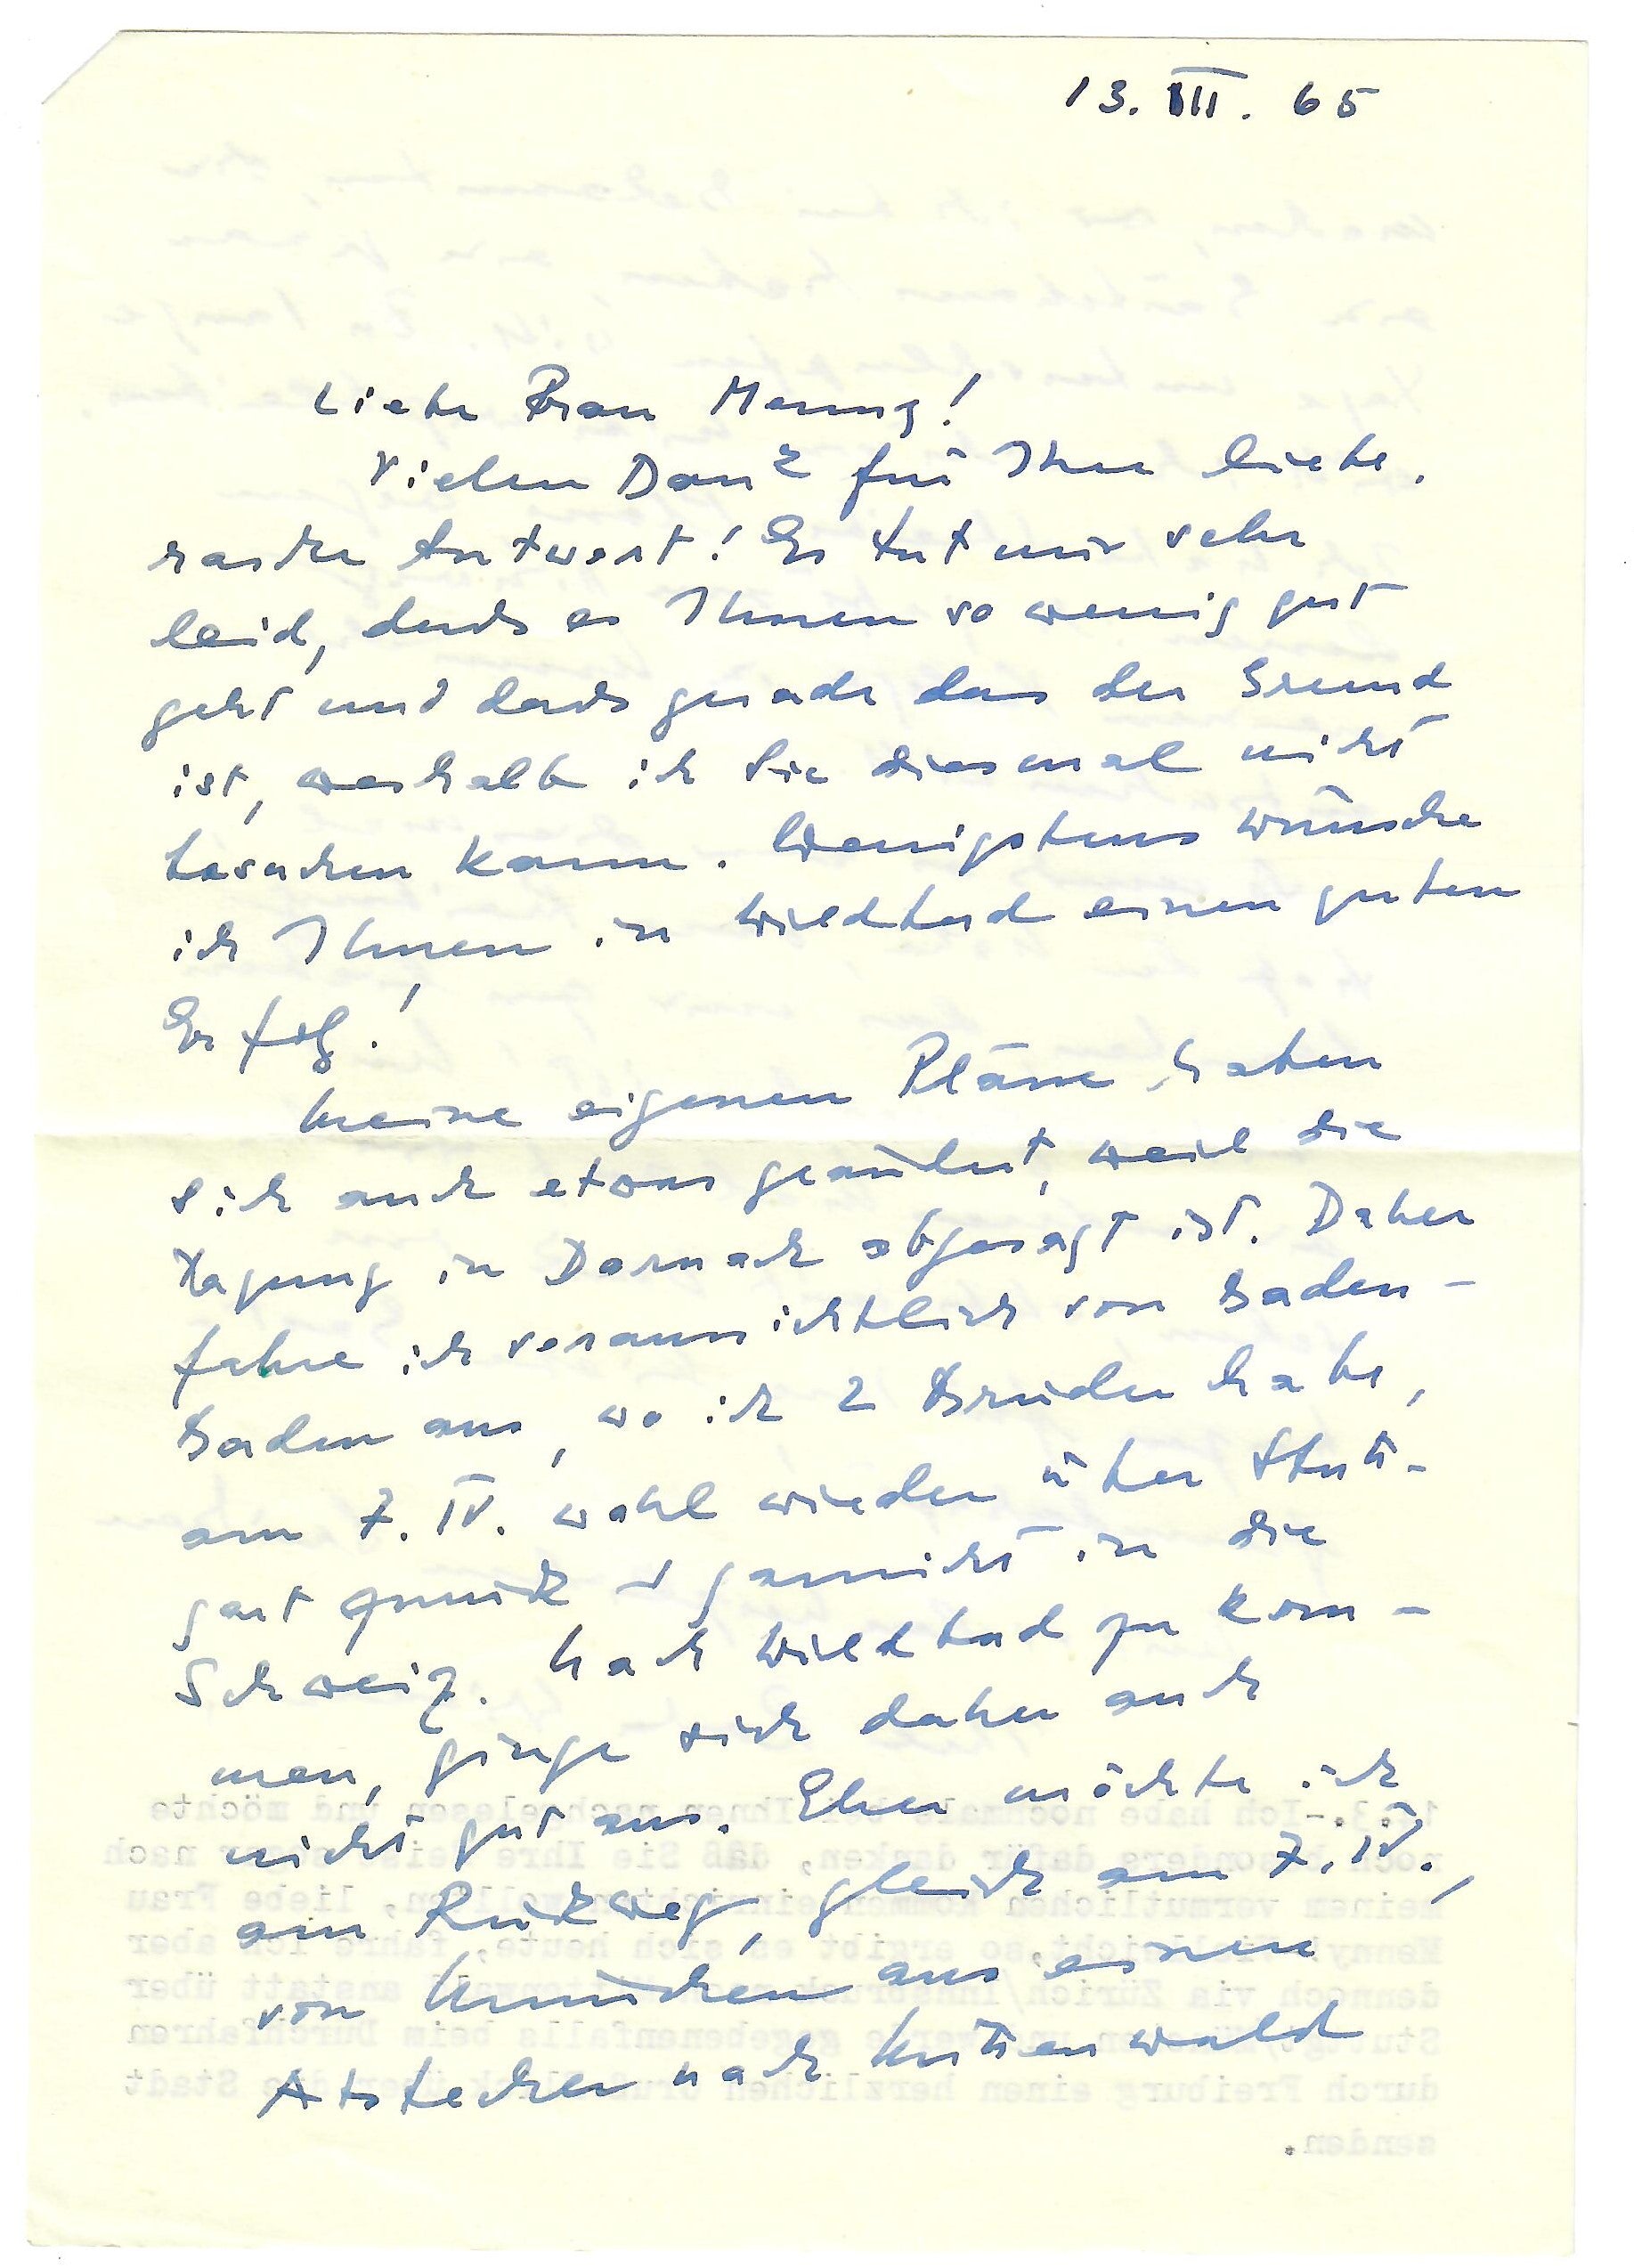 13. III. 65
Liebe Frau Menny!
Vielen Dank für Ihre liebe,
rasche Antwort! Es tut mir sehr
leid, dass es Ihnen so wenig gut
geht und dass gerade das der Grund
ist, weshalb ich Sie diesmal nicht
besuchen kann. Wenigstens wünsche
ich Ihnen in Wildbad einen guten
Erfolg!
Meine eigenen Pläne haben
sich auch etwas geändert, weil die
Tagung in Dornach abgesagt ist. Daher
fahre ich voraussichtlich von Baden-
Baden aus, wo ich 2 Brüder habe,
am 7. IV. wohl wieder über Stutt-
gart zurück u garnicht in die
Schweiz. Nach Wildbad zu kom-
men, ginge sich daher auch
nicht gut aus. Eher möchte ich
am Rückweg, gleich am 7. IV.,
von München aus einen
Abstecher nach Mittenwald
1 .3.-Ich habe nochmals Ihnen nachgelesen und möchte
noch besonders dafür danken, daß Sie Ihre nach
meinem vermutlichen Kommen , liebe Frau
Menny so ergibt es sich heute, fahre ich aber
dennoch via Zürich/Innsbruck anstatt über
gegebenenfalls beim Durchfahren
durch Freiburg einen herzlichen über die Stadt
senden.